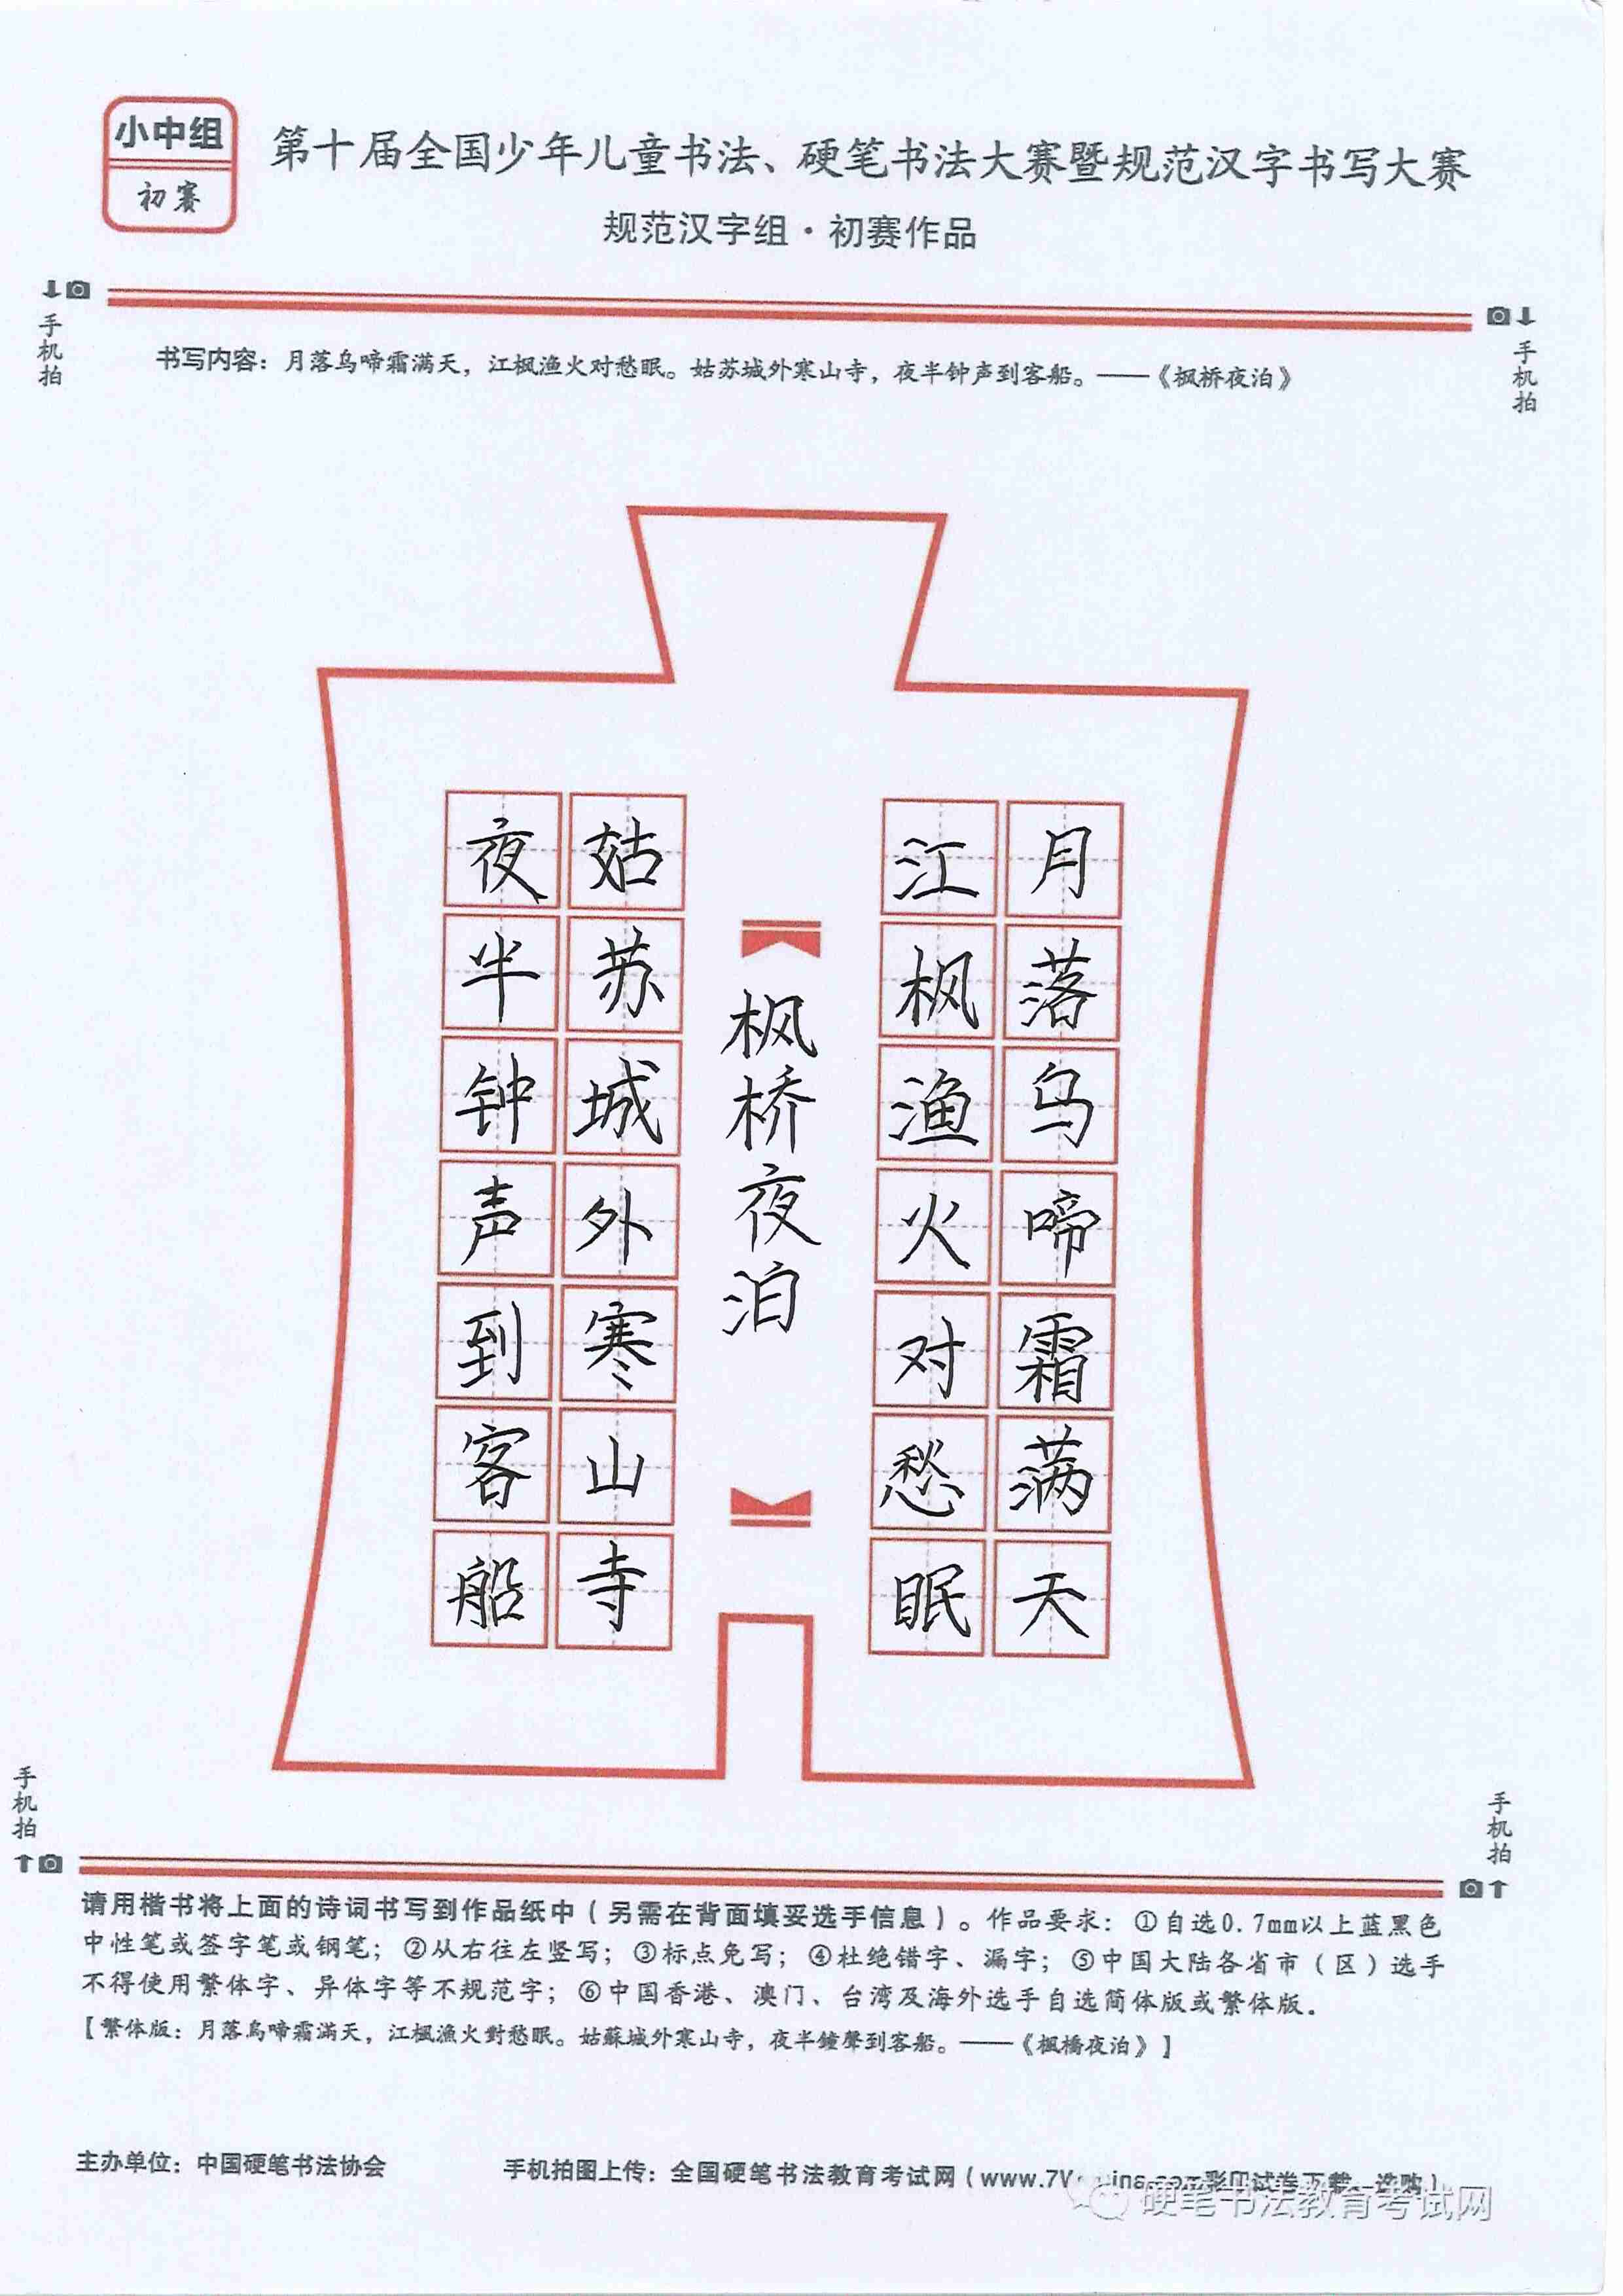 小中组
初赛
第十届全国少年儿童书法、硬笔书法大赛暨规范汉字书写大赛
规范汉字组·初赛作品
手机拍
手机拍
书写内容：月落乌啼霜满天，江枫渔火对愁眠。姑苏城外寒山寺，夜半钟声到客船。——《枫桥夜泊》
月落乌啼霜满天
江枫渔火对愁眠
枫桥夜泊
姑苏城外寒山寺
夜半钟声到客船
手机拍
手机拍
请用楷书将上面的诗词书写到作品纸中（另需在背面填妥选手信息）。作品要求：①自选0.7mm以上蓝黑色
中性笔或签字笔或钢笔；②从右往左竖写；③标点免写；④杜绝错字、漏字；⑤中国大陆各省市（区）选手
不得使用繁体字、异体字等不规范字；⑥中国香港、澳门、台湾及海外选手自选简体版或繁体版.
【繁体版：月落烏啼霜滿天，江楓漁火對愁眠。姑蘇城外寒山寺，夜半鐘聲到客船。——《楓橋夜泊》】
主办单位：中国硬笔书法协会
手机拍图上传：全国硬笔书法教育考试网（www.7
硬笔书法教育考试网